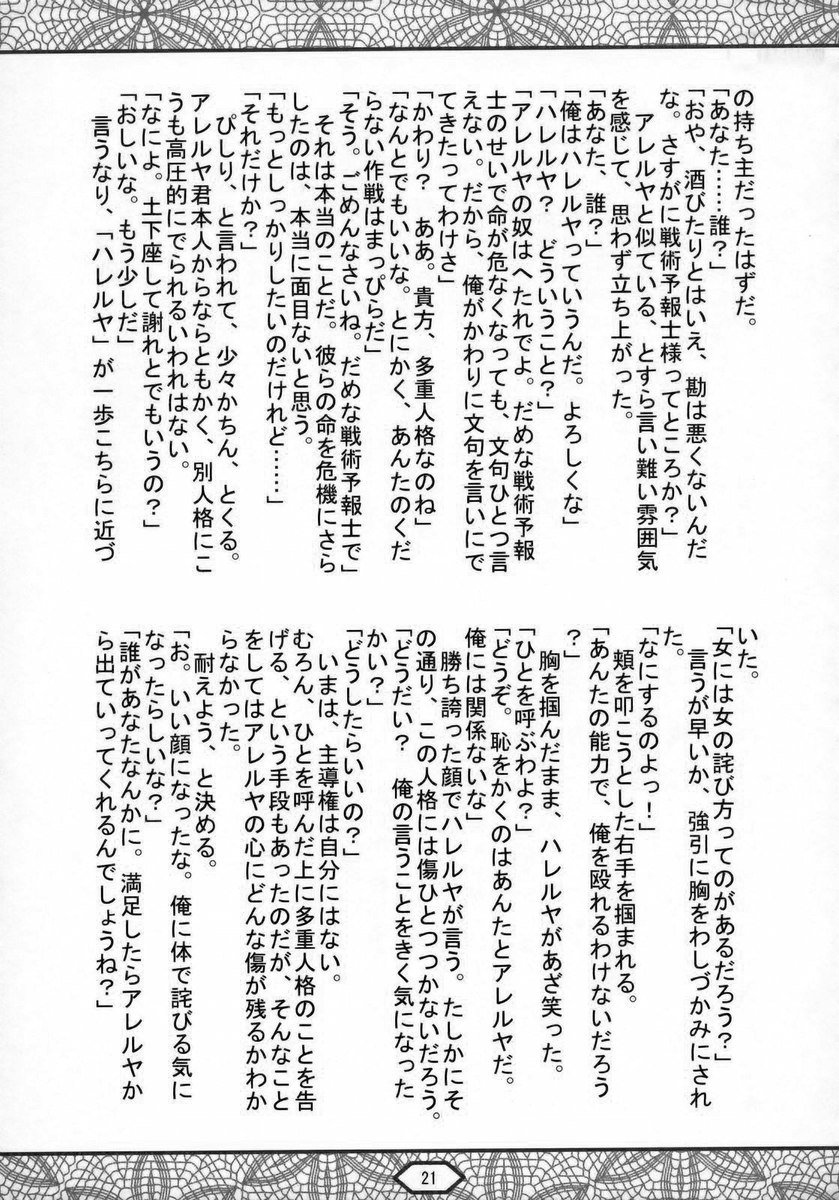 の持ち主だったはずだ。
「あなた……誰？」
「おや、酒びたりとはいえ、勘は悪くないんだ
な。さすがに戦術予報士様ってところか？」
　アレルヤと似ている、とすら言い難い雰囲気
を感じて、思わず立ち上がった。
「あなた、誰？」
「俺はハレルヤっていうんだ。よろしくな」
「ハレルヤ？　どういうこと？」
「アレルヤの奴はへたれでよ。だめな戦術予報
士のせいで命が危なくなっても、文句ひとつ言
えない。だから、俺がかわりに文句を言いにで
てきたってわけさ」
「かわり？　ああ。貴方、多重人格なのね」
「なんとでもいいな。とにかく、あんたのくだ
らない作戦はまっぴらだ」
「そう。ごめんなさいね。だめな戦術予報士で」
　それは本当のことだ。彼らの命を危機にさら
したのは、本当に面目ないと思う。
「もっとしっかりしたいのだけれど……」
「それだけか？」
　ぴしり、と言われて、少々かちん、とくる。
アレルヤ君本人からならともかく、別人格にこ
うも高圧的にでられるいわれはない。
「なによ。土下座して謝れとでもいうの？」
「おしいな。もう少しだ」
　言うなり、「ハレルヤ」が一歩こちらに近づ
いた。
「女には女の詫び方ってのがあるだろう？」
　言うが早いか、強引に胸をわしづかみにされ
た。
「なにするのよっ！」
　頬を叩こうとした右手を掴まれる。
「あんたの能力で、俺を殴れるわけないだろう
？」
　胸を掴んだまま、ハレルヤがあざ笑った。
「ひとを呼ぶわよ？」
「どうぞ。恥をかくのはあんたとアレルヤだ。
俺には関係ないな」
　勝ち誇った顔でハレルヤが言う。たしかにそ
の通り、この人格には傷ひとつつかないだろう。
「どうだい？　俺の言うことをきく気になった
かい？」
「どうしたらいいの？」
　いまは、主導権は自分にはない。
むろん、ひとを呼んだ上に多重人格のことを告
げる、という手段もあったのだが、そんなこと
をしてはアレルヤの心にどんな傷が残るかわか
らなかった。
　耐えよう、と決める。
「お。いい顔になったな。俺に体で詫びる気に
なったらしいな？」
「誰があなたなんかに。満足したらアレルヤか
ら出ていってくれるんでしょうね？」
21